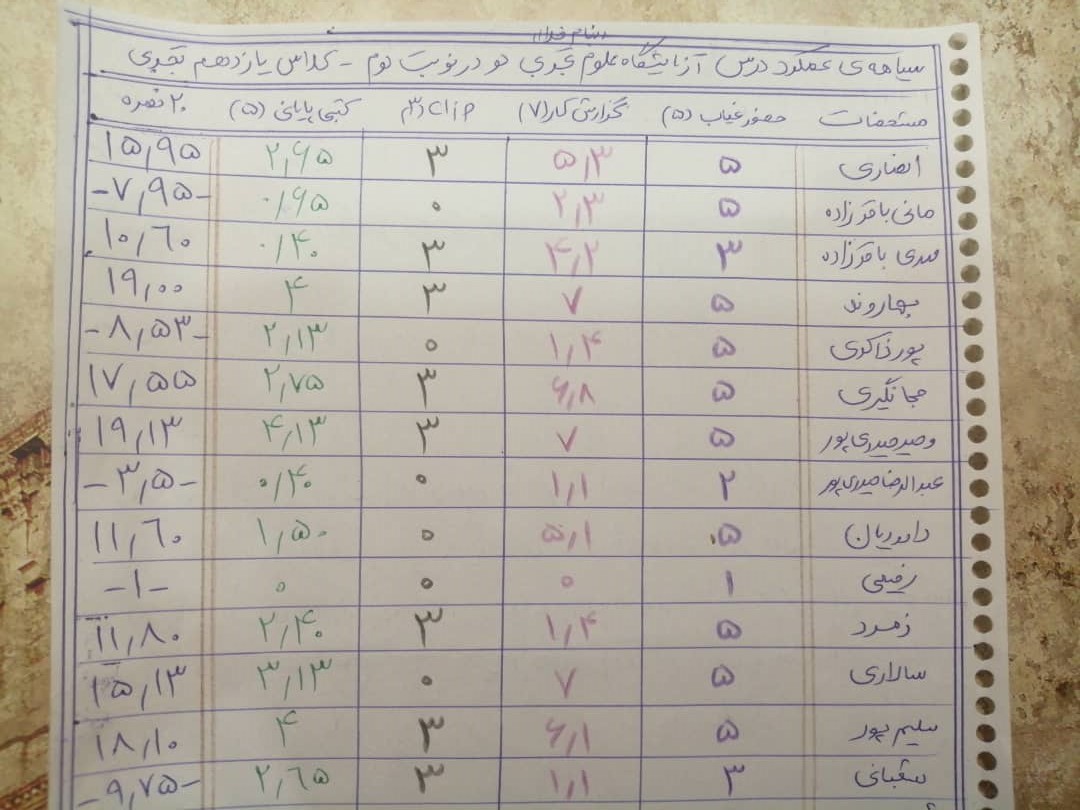 بنام خدا
سیاهه ی عملکرد درس آزمایشگاه علوم تجربی دو در نوبت دوم - کلاس یازدهم تجربی
مشخصات حضور غیاب (۵) گزارش کار (۷) clip ۳ کتبی پایانی (۵) ۲۰ نمره
انصاری ۵ ۵٫۳ ۳ ۲٫۶۵ ۱۵٫۹۵
مانی باقرزاده ۵ ۲٫۳ ۰ ۰٫۶۵ -۷٫۹۵-
مهدی باقرزاده ۳ ۴٫۲ ۳ ۰٫۴۰ ۱۰٫۶۰
بهاروند ۵ ۷ ۳ ۴ ۱۹٫۰۰
پورذاکری ۵ ۱٫۴ ۰ ۲٫۱۳ -۸٫۵۳-
جهانگیری ۵ ۶٫۸ ۳ ۲٫۷۵ ۱۷٫۵۵
وحید حیدری پور ۵ ۷ ۳ ۴٫۱۳ ۱۹٫۱۳
عبدالرضا حیدری پور ۲ ۱٫۱ ۰ ۰٫۴۰ -۳٫۵-
داوریان ۵ ۵٫۱ ۰ ۱٫۵۰ ۱۱٫۶۰
رفیعی ۱ ۰ ۰ ۰ -۱-
زمرد ۵ ۱٫۴ ۳ ۲٫۴۰ ۱۱٫۸۰
سالاری ۵ ۷ ۰ ۳٫۱۳ ۱۵٫۱۳
سلیم پور ۵ ۶٫۱ ۳ ۴ ۱۸٫۱۰
شعبانی ۳ ۱٫۱ ۳ ۲٫۶۵ -۹٫۷۵-